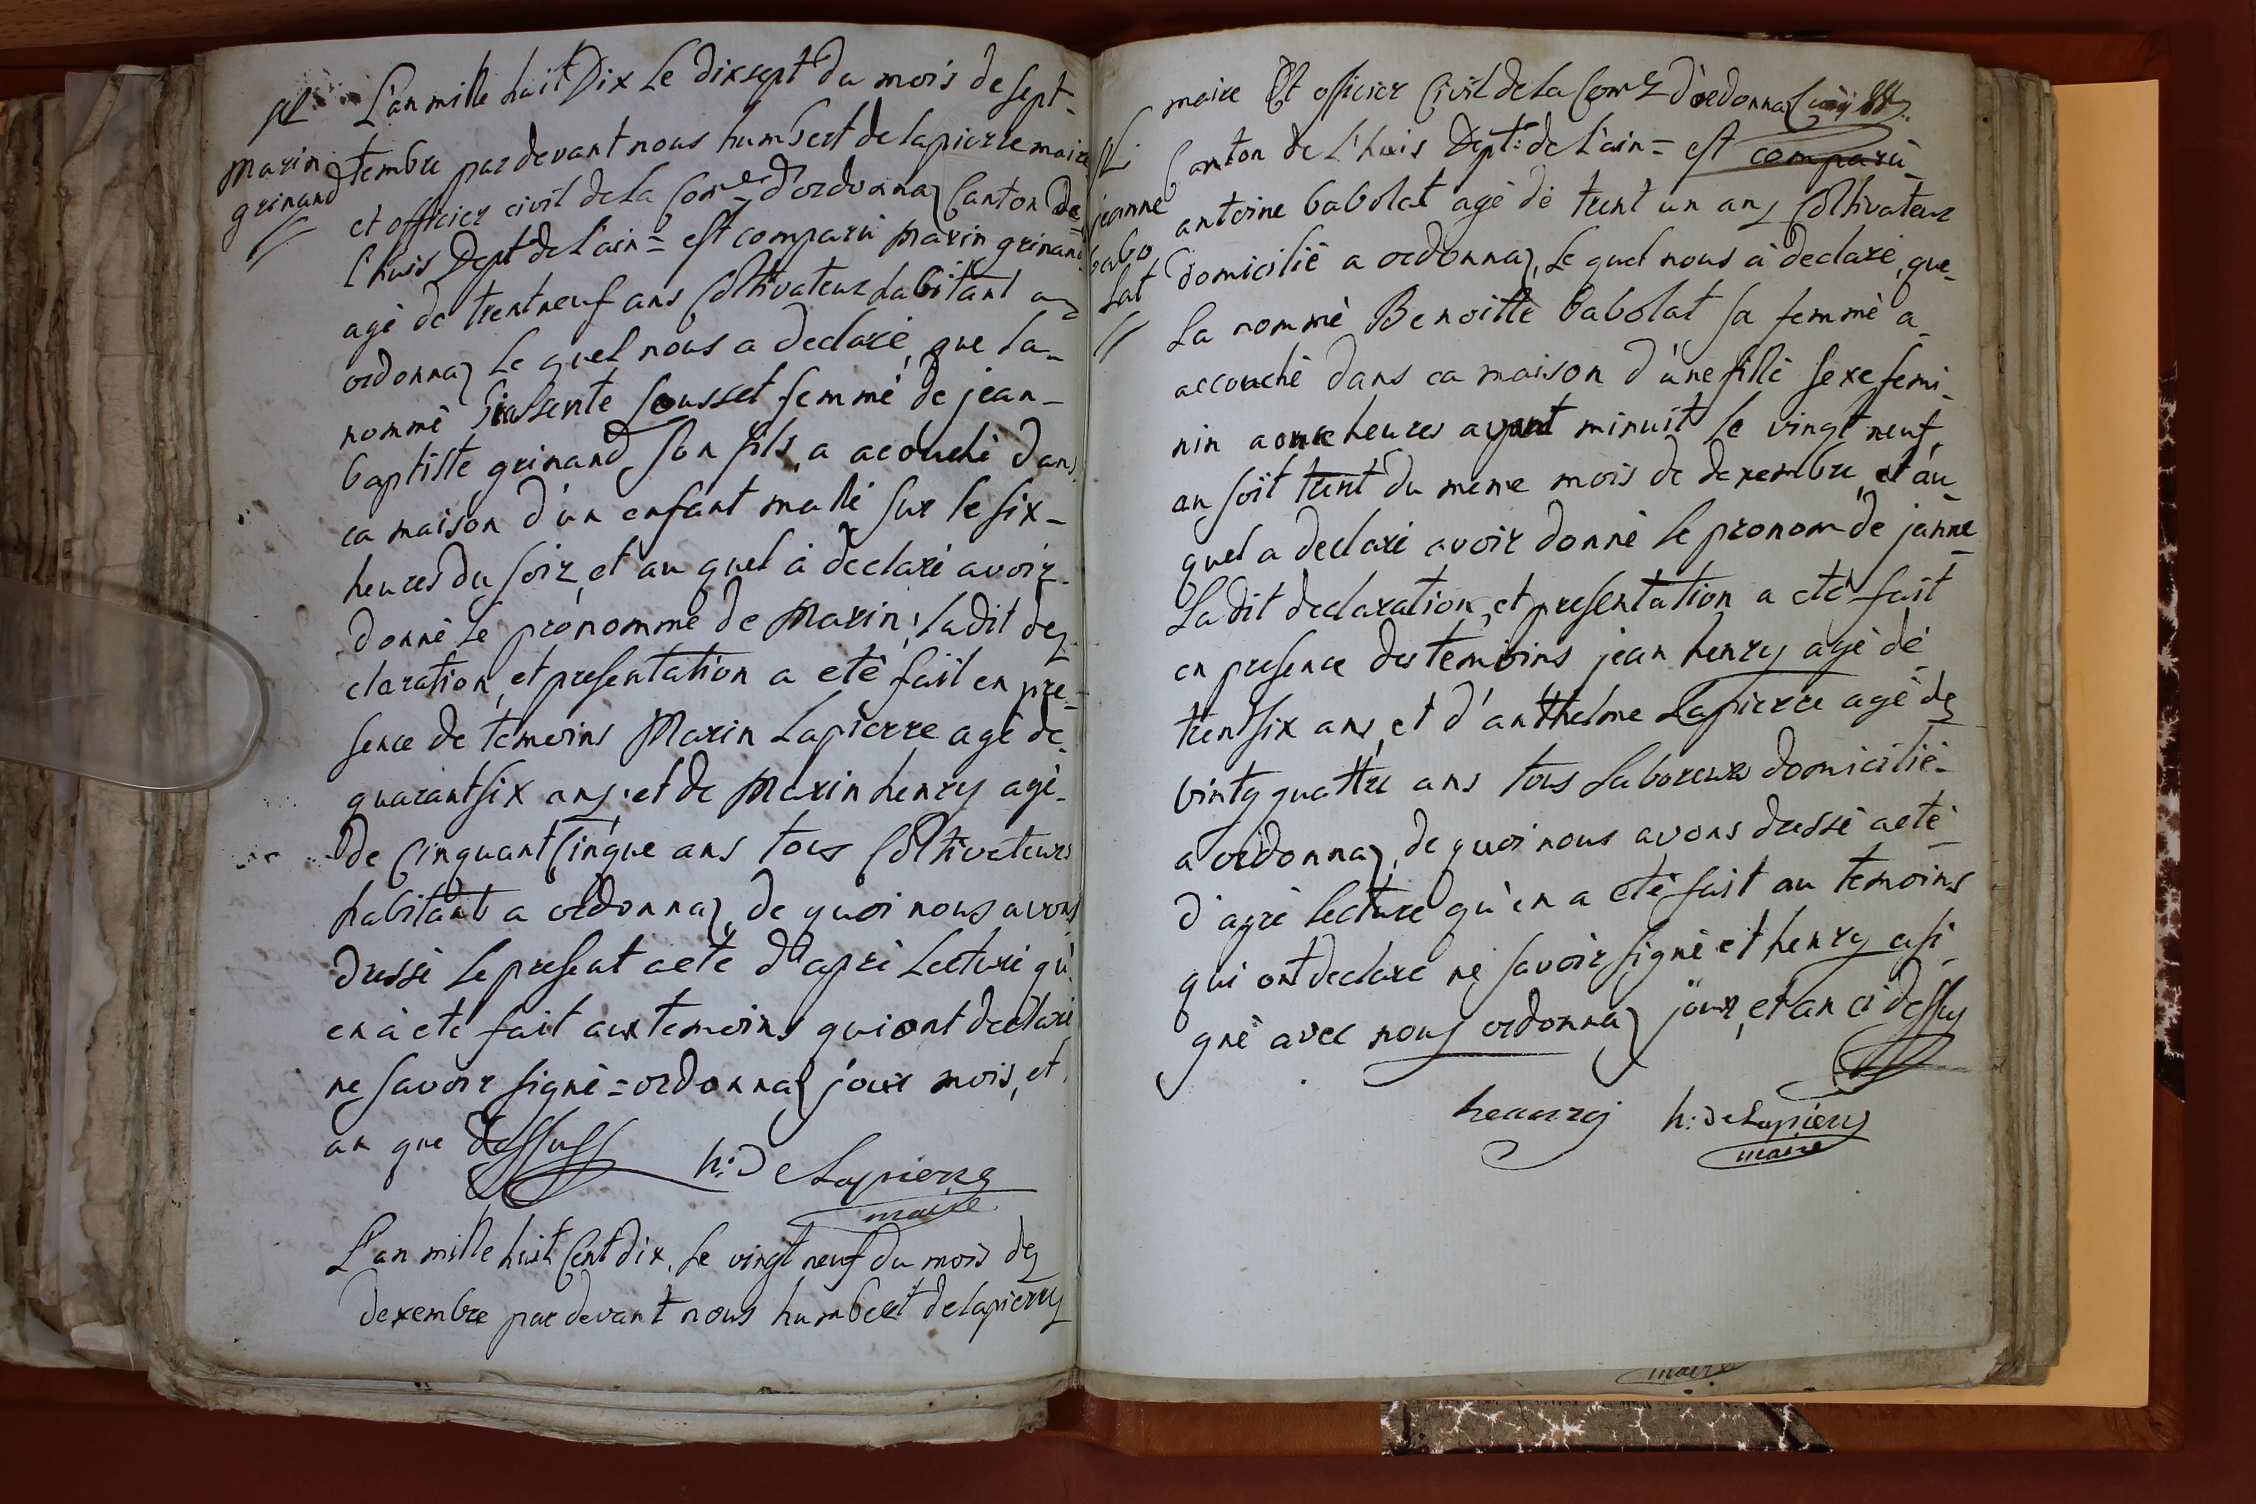 L'an mille huit Dix Le dixsept Du mois de sept-
Marin
grinand
tembre par devant nous humbert de lapierre maire
et officier civil de la Com.e D'ordonnaz Canton De
l'huis Dept De l'ain = est comparu Marin grinand
agé de trentneuf ans Coltivateur habitant a
ordonnaz Le quel nous a Declaré, que La-
nommé Sousset femme De jean-
baptiste grinand son fils, a acouché Dans
ca maison D'un enfant malle sur le six-
heures Du soir, et au quel à Declaré avoir-
Donné Le pronomme De Marin; Ladit de-
claration, et presentation a eté fait en pre-
sence de temoins Marin Lapierre agé de-
quarantsix ans, et De Marin henry agé-
De Cinquant Cinque ans tous Coltivateurs
habitant a ordonnaz, De quoi nous avons
Dressé Le present acte D'aprè Lecture qu'
en à eté fait aux temoins qui ont declaré
ne savoir signé = ordonnaz jour mois, et
an que Dessuss
h: De Lapierre
maire
L'an mille huit Cent dix, Le vingt neuf Du mois de
Dexembre par devant nous humbert Delapierre
maire Et officier Civil de La Com.e D'ordonnaz
jeanne
babo
lat
Canton De L'huis Dept: de L'ain = est comparu-
antoine babolat agé dé trent un ans Coltivateur
Domicilié a ordonnaz, Le quel nous à declaré, que-
La nommé Benoitte babolat sa femmè a-
accouché Dans ca maison D'une fille sexe femi-
nin a onze heures avant minuit Le vingt neuf,
an soit trent Du meme mois De Dexembre, et au-
quel a Declaré avoir Donné Le pronom De janne-
La dit declaration, et presentation a eté fait
en presence Des temoins jean henry agé dé
trentsix ans, et D'anthelme Lapierre agé de
vintg quattre ans tous Laboreurs Domicilié-
a ordonnaz, De quoi nous avons dressé acte-
D'aprè Lecture qu'en a eté fait au temoins
qui ont declaré ne savoir signé et henry a si-
gné avec nous ordonnaz jour, et an ci dessus
heanrij h: De Lapierre
maire
maire